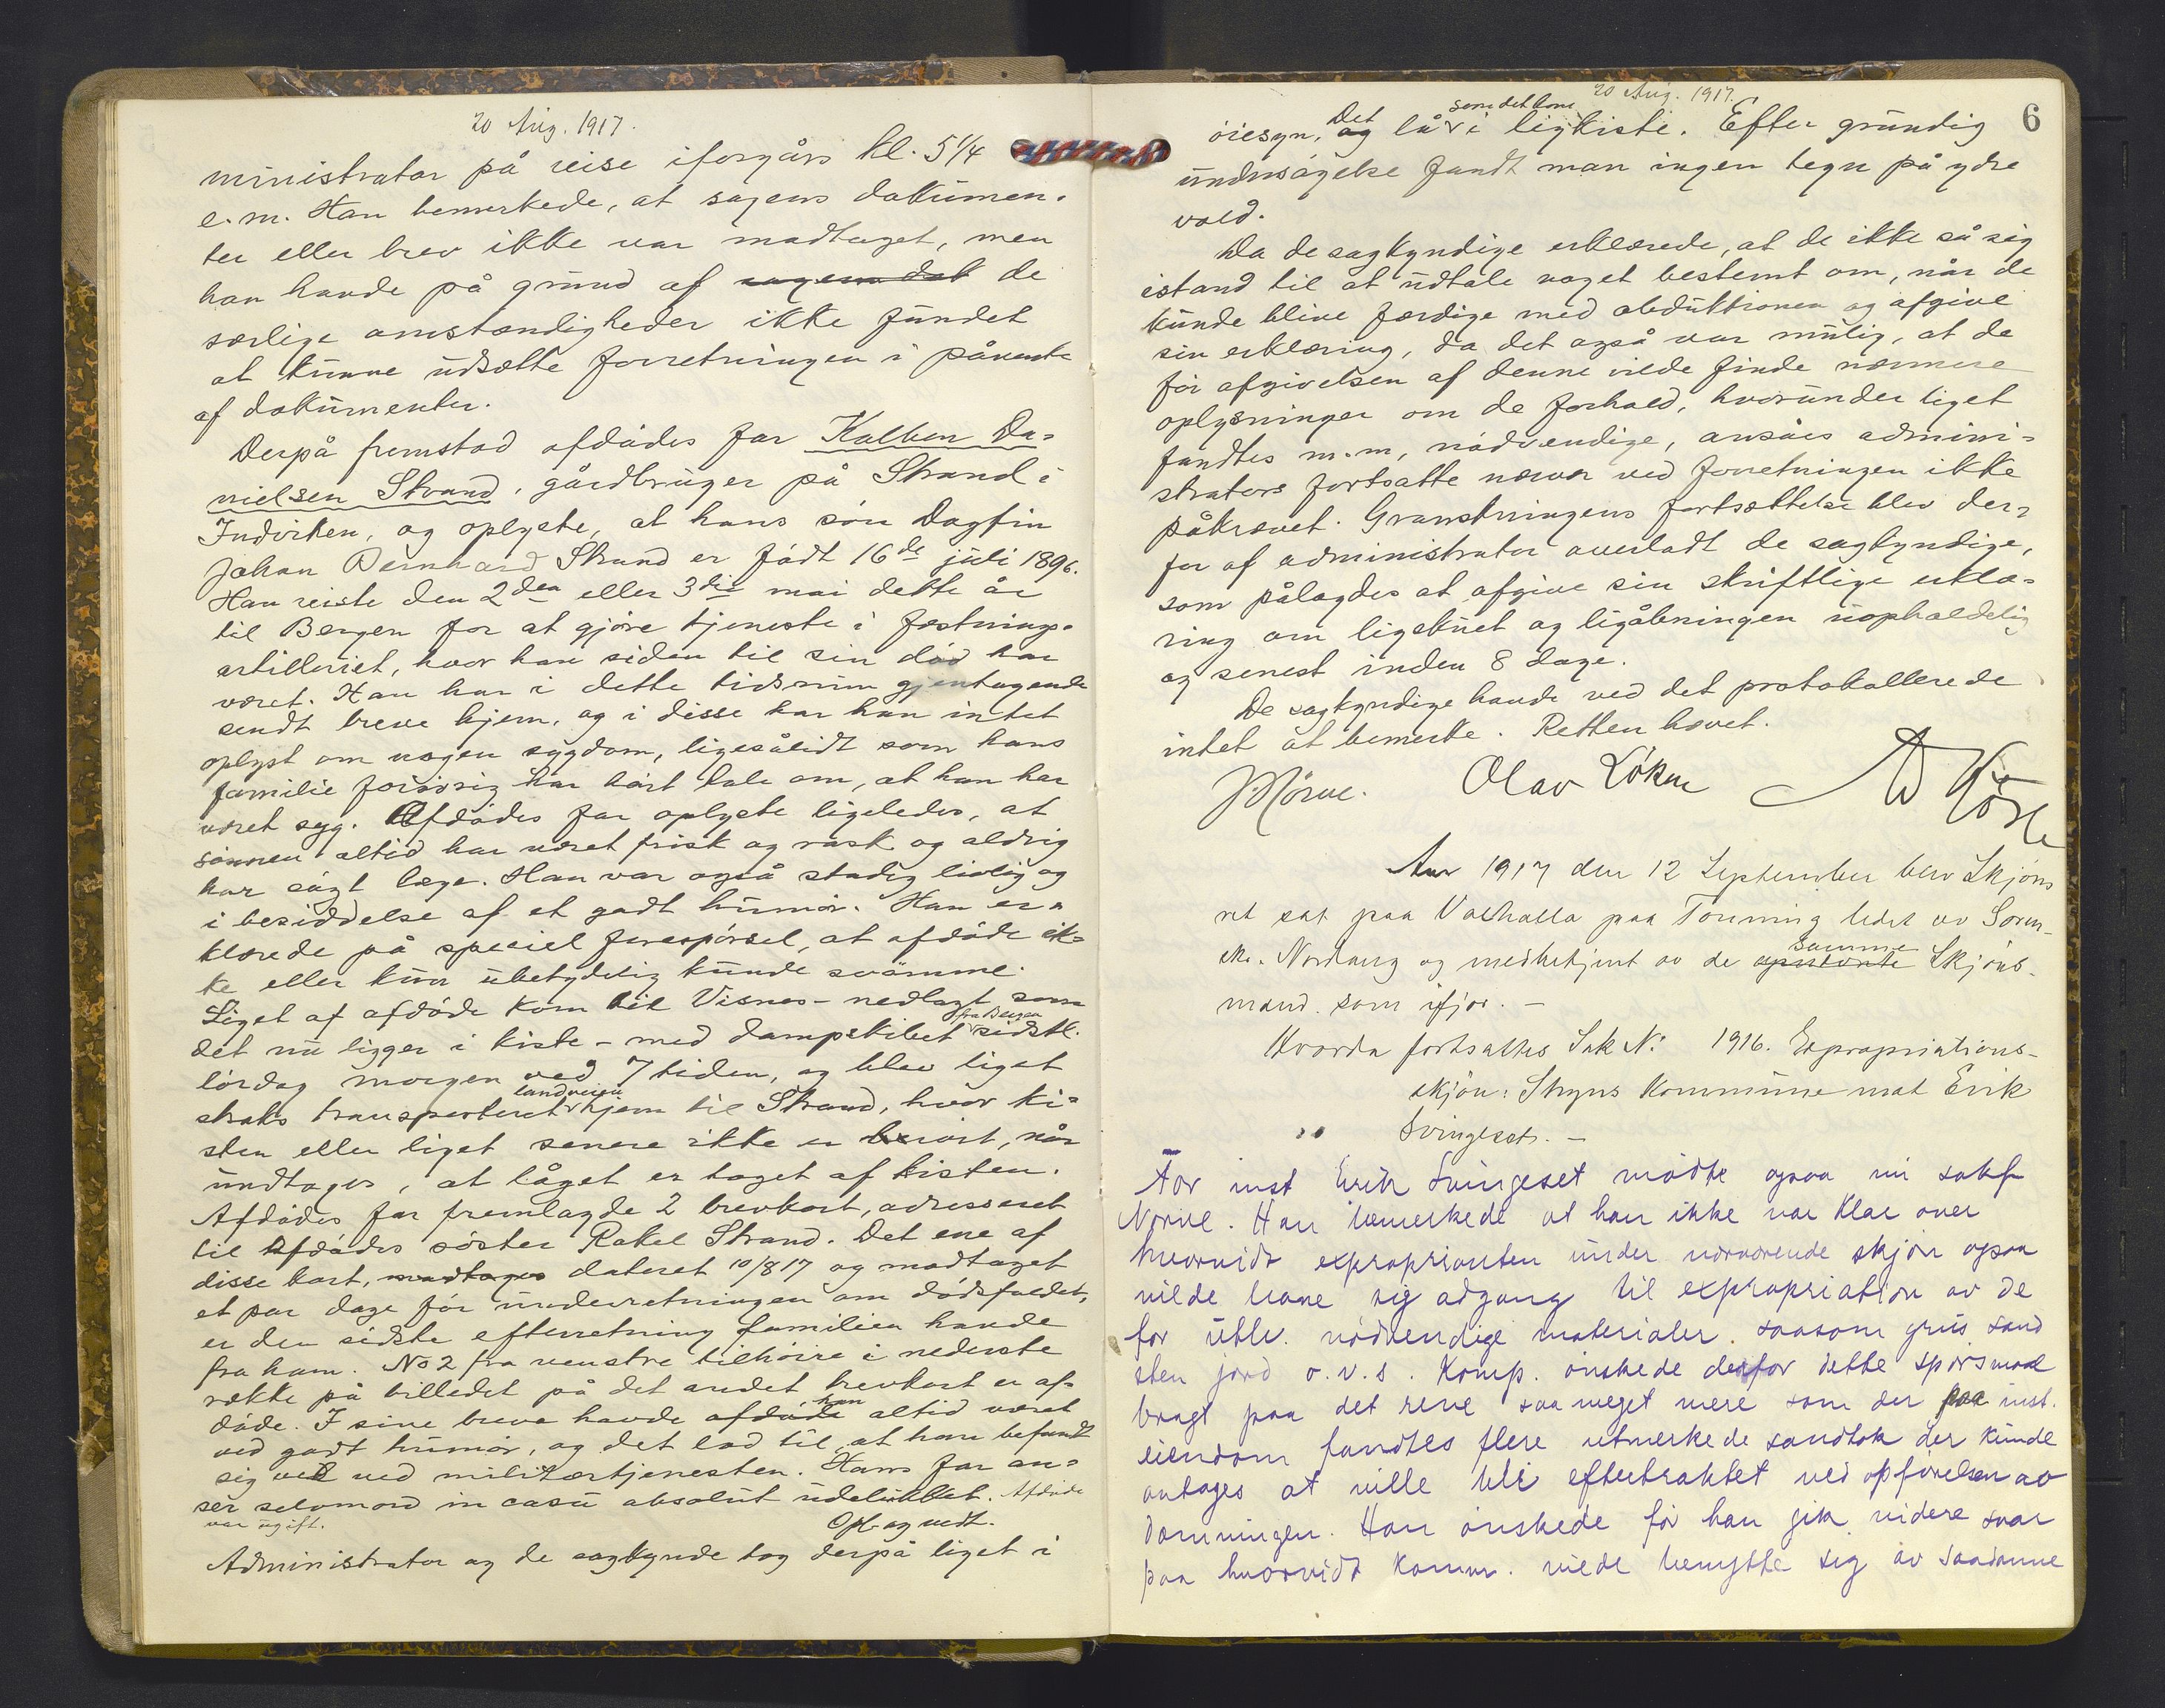 20 Aug. 1917.
ministrator på reise iforgårs kl. 5 1/4
e.m. Han bemerkede, at sagens dokumen-
ter eller brev ikke var modtaget, men
han havde på grund af sagens dok de
særlige omstændigheder ikke fundet
at kunne udsætte forretningen i påvente
af dokumenter.
Derpå fremstod afdødes far Kolben Da-
nielsen Strand, gårdbruger på Strand i
Indviken, og oplyste, at hans søn Dagfin
Johan Bernhard Strand er født 16de juli 1896.
Han reiste den 2den eller 3die mai dette år
til Bergen for at gjøre tjeneste i fæstnings-
artilleriet, hvor han siden til sin død har
været. Han har i dette tidsrum gjentagende
sendt breve hjem, og i disse har han intet
oplyst om nogen sygdom, ligesålidt som hans
familie forøvrig har hørt tale om, at han har
været syg. Afdødes far oplyste ligeledes, at
sønnen altid har været frisk og rask og aldrig
har søgt læge. Han var også stadig livlig og
i besiddelse af et godt humør. Han er-
klærede på speciel forespørsel, at afdøde ik-
ke eller kun ubetydelig kunde svømme.
Liget af afdøde kom til Visnes - nedlagt som
det nu ligger i kiste - med dampskibet fra Bergen sidstl.
lørdag morgen ved 7 tiden, og blev liget
straks transporteret landveien hjem til Strand, hvor ki-
sten eller liget senere ikke er berørt, når
undtages, at låget er taget af kisten.
Afdødes far fremlagde 2 brevkort, adresseret
til afdødes søster Rakel Strand. Det ene af
disse kort, modtages dateret 10/8 17 og modtaget
et par dage før underretningen om dødsfaldet,
er den sidste efterretning familien havde
fra ham. No 2 fra venstre tilhøire i nederste
række på billedet på det andet brevkort er af-
døde. I sine breve havde afdøde han altid været
ved godt humør, og det lod til, at han befandt
sig vel ved militærtjenesten. Hans far an-
ser selvmord in casu absolut udelukket. Afdøde
var ugift.
Opl. og vedt.
Administrator og de sagkynde tog derpå liget i
20 Aug. 1917.
6
øiesyn, og Det lå som det kom i ligkiste. Efter grundig
undersøgelse fandt man ingen tegn på ydre
vold.
Da de sagkyndige erklærede, at de ikke så sig
istand til at udtale noget bestemt om, når de
kunde blive færdige med obduktionen og afgive
sin erklæring, da det også var mulig, at de
før afgivelsen af denne vilde finde nærmere
oplysninger om de forhold, hvorunder liget
fandtes m.m, nødvendige, ansåes admini-
strators fortsatte nærvær ved forretningen ikke
påkrævet. Granskningens fortsættelse blev der-
for af administrator overladt de sagkyndige,
som pålagdes at afgive sin skriftlige erklæ-
ring om ligskuet og ligåbningen uopholdelig
og senest inden 8 dage.
De sagkyndige havde ved det protokollerede
intet at bemerke. Retten hævet.
Olav Löken
Aar 1917 den 12 September blev Skjøns
ret sat paa Valhalla paa Tonning ledet av Soren-
skr. Nordang og medbetjent av de samme Skjøns-
mænd som ifjor. -
Hvorda fortsattes Sak No 1916. Expropriations-
skjøn: Stryns Kommune mot Erik
" Svingeset. -
For inst Erik Svingeset mødte ogsaa nu sakf
Nørve. Han bemerkede at han ikke var klar over
hvorvidt exproprianten under nærværende skjøn ogsaa
vilde have sig adgang til expropriation av de
for utbl. nødvendige materialer saasom grus sand
sten jord o.v.s. Komp. ønskede derfor dette spørsmaal
bragt paa det rene saa meget mere som der paa inst.
eiendom fandtes flere utmerkede sandtak der kunde
antages at ville bli eftertraktet ved opførelsen av
dæmningen. Han ønskede før han gik videre svar
paa hvorvidt komm. vilde benytte sig av saadanne